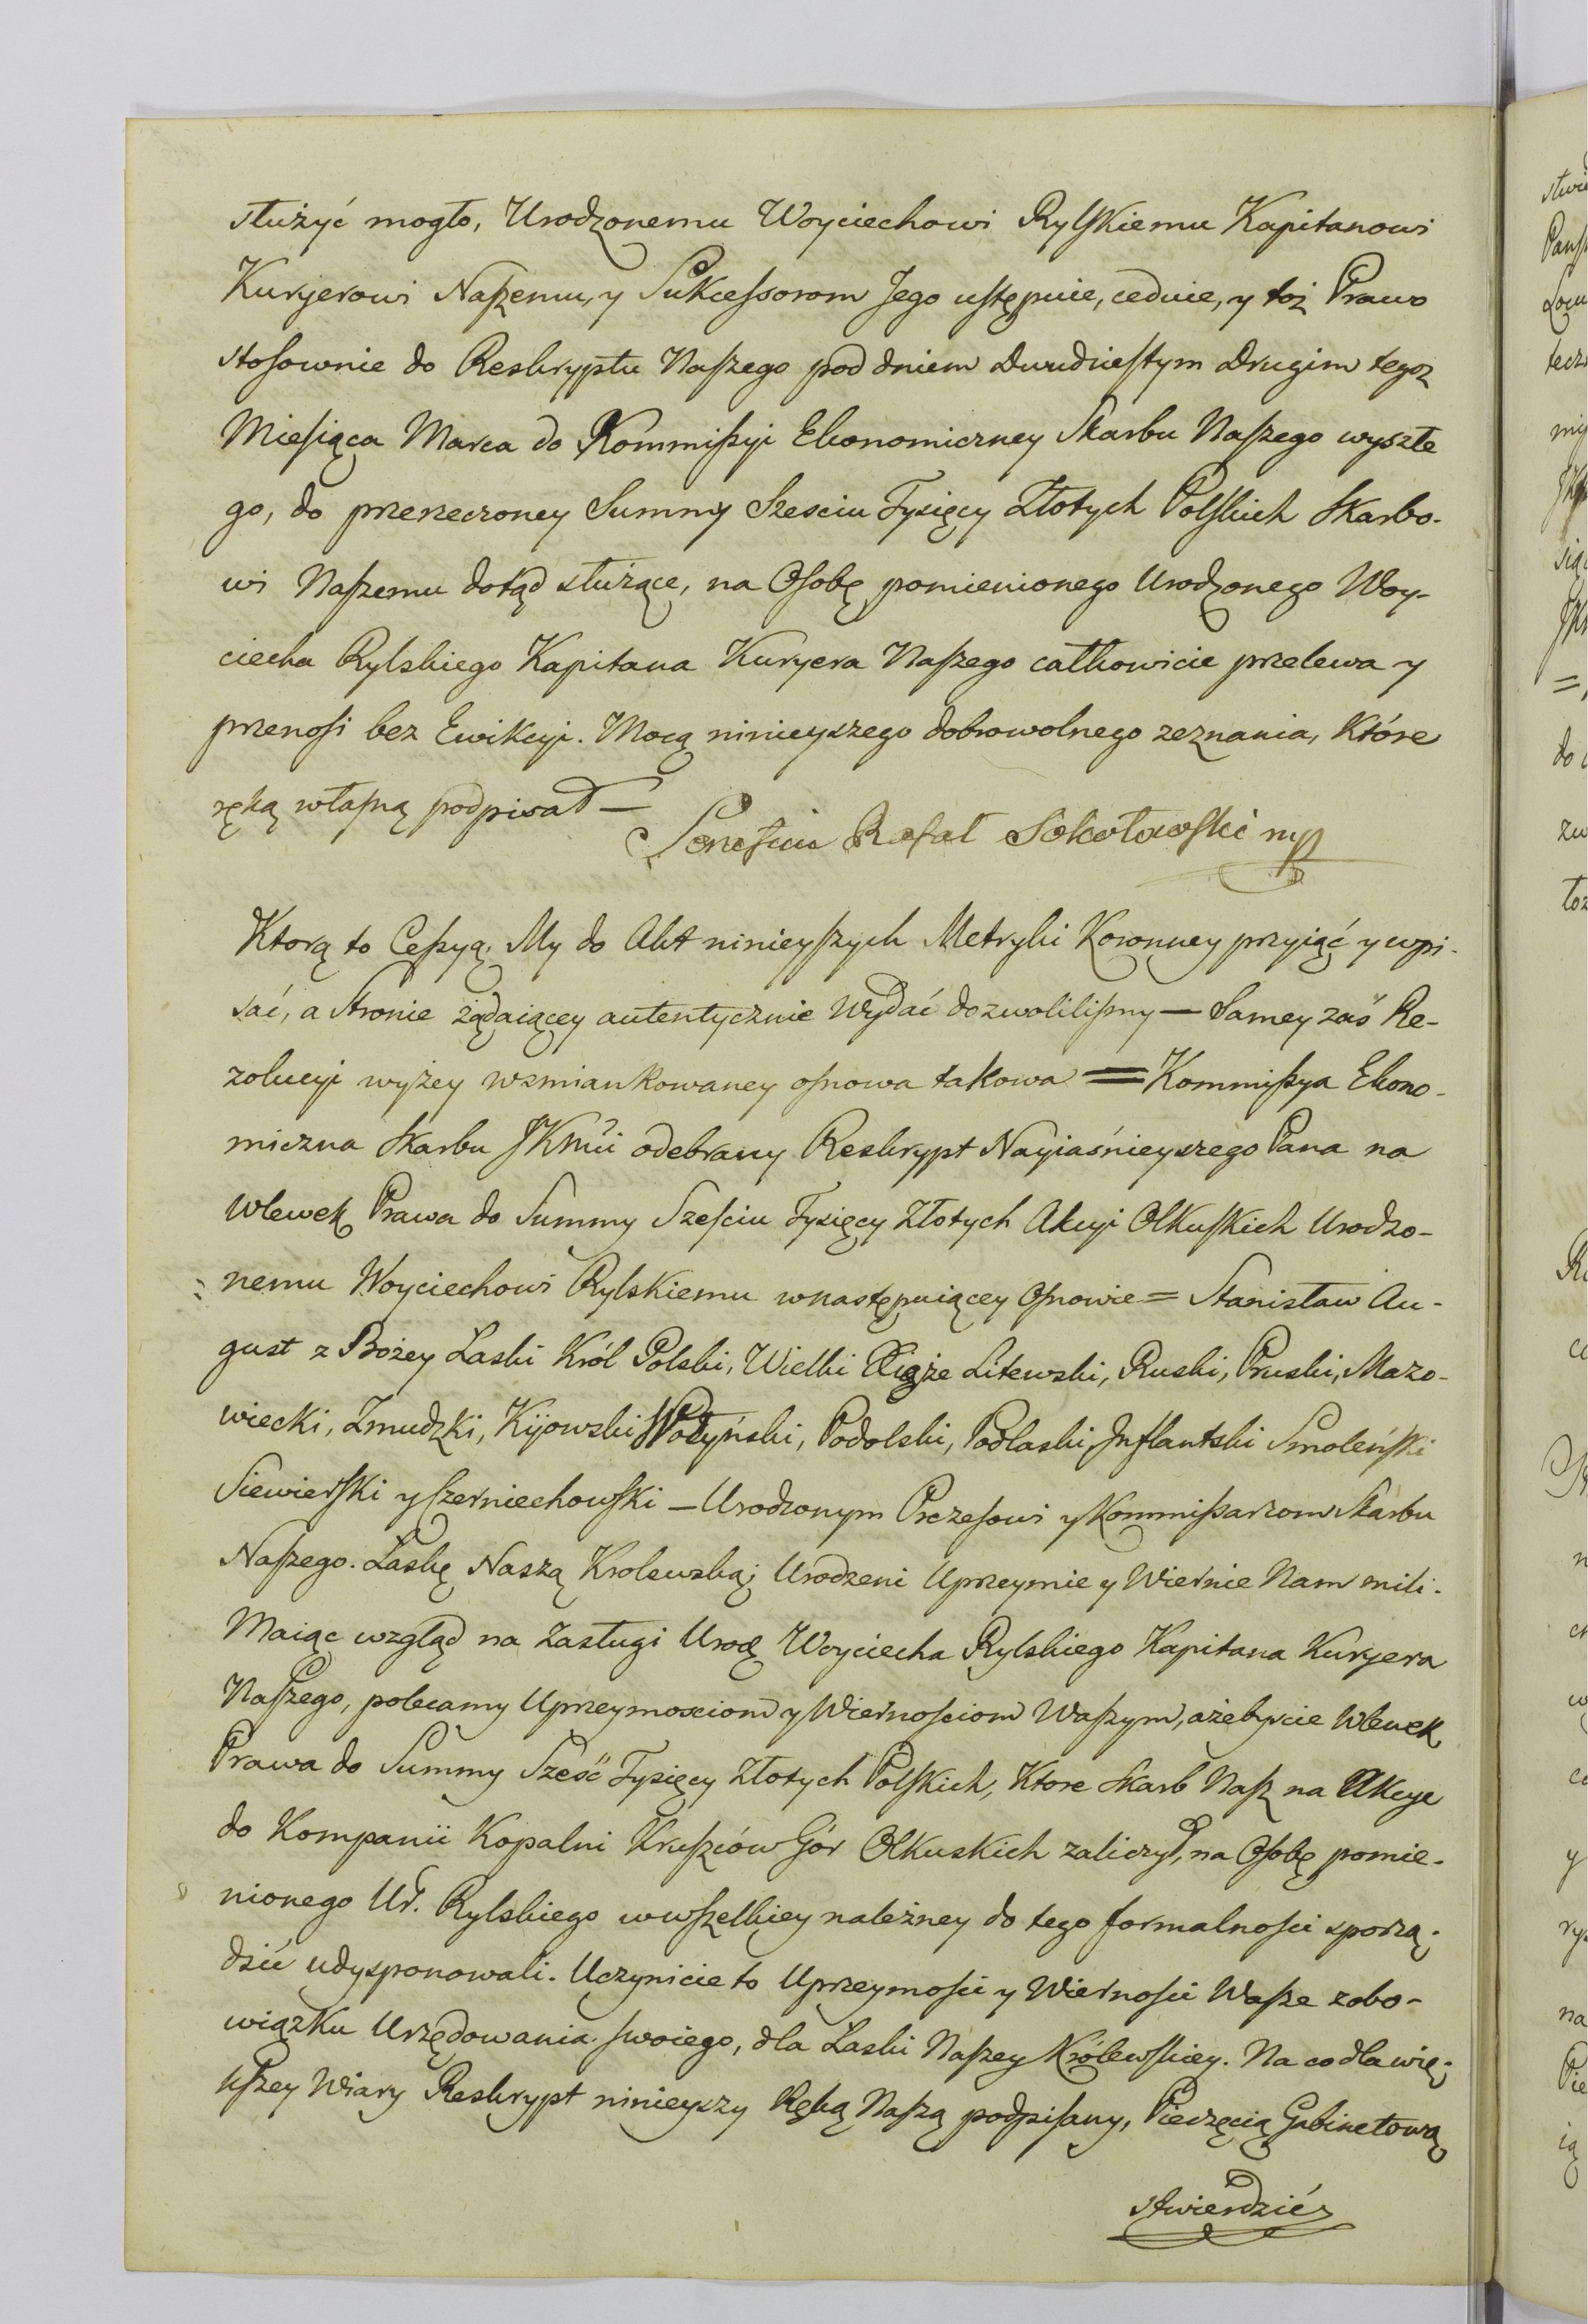 służyć mogło, Urodzonemu Woyciechowi Rylskiemu Kapitanowi
Kuryerowi Naszemu, y Sukcessorom Jego ustępuie, ceduie, y toż Prawo
stosownie do Reskryptu Naszego pod dniem Dwudziestym Drugim tegoż
Miesiąca Marca do Kommissyi Ekonomiczney Skarbu Naszego wyszłe
go, do przerzeczoney Summy Szesciu Tysięcy Złotych Polskich Skarbo-
wi Naszemu dotąd służące, na Osobę pomienionego Urodzonego Woy-
ciecha Rylskiego Kapitana Kuryera Naszego całkowicie przelewa y
przenosi bez Ewikcyi. Mocą ninieyszego dobrowolnego zeznania, Które
ręką własną podpisał —
Rafał Sokołowski mp
Ktorą to Cessyą, My do Akt ninieyszych Metryki Koronney przyiąć y wpi-
sać, a Stronie żądaiącey autentycznie Wydać dozwolilismy — Samey zaś Re-
zolucyi wyżey wzmiankowaney osnowa takowa = Kommissya Ekono-
miczna Skarbu JKMci odebrany Reskrypt Nayiaśnieyszego Pana na
Wlewek Prawa do Summy Szesciu Tysięcy Złotych Akcyi Olkuskich Urodzo-
nemu Woyciechowi Rylskiemu w następuiącey Osnowie = Stanisław Au-
gust z Bożey Łaski Król Polski, Wielki Xiąże Litewski, Ruski, Pruski, Mazo-
wiecki, Zmudzki, Kijowski Wołyński, Podolski, Podlaski, Inflantski Smoleński
Siewierski y Czerniechowski — Urodzonym Prezesowi y Kommissarzom Skarbu
Naszego. Łaskę Naszą Krolewską; Urodzeni Uprzeymie y Wiernie Nam mili.
Maiąc wzgląd na Zasługi Urodz Woyciecha Rylskiego Kapitana Kuryera
Naszego, polecamy Uprzeymosciom y Wiernosciom Waszym, ażebyscie Wlewek
Prawa do Summy Sześć Tysięcy Złotych Polskich, Ktore Skarb Nasz na Akcye
do Kompanii Kopalni Kruszców Gór Olkuskich zaliczył, na Osobę pomie-
nionego Ur. Rylskiego w wszelkiey należney do tego formalnosci sporzą-
dzić udysponowali. Uczynicie to Uprzeymosci y Wiernosci Wasze z obo-
wiązku Urzędowania swoiego, dla Łaski Naszey Królewskiey. Na co dla wię-
kszey Wiary Reskrypt ninieyszy Ręką Naszą podpisany, Pieczęcią Gabinetową
stwierdzić